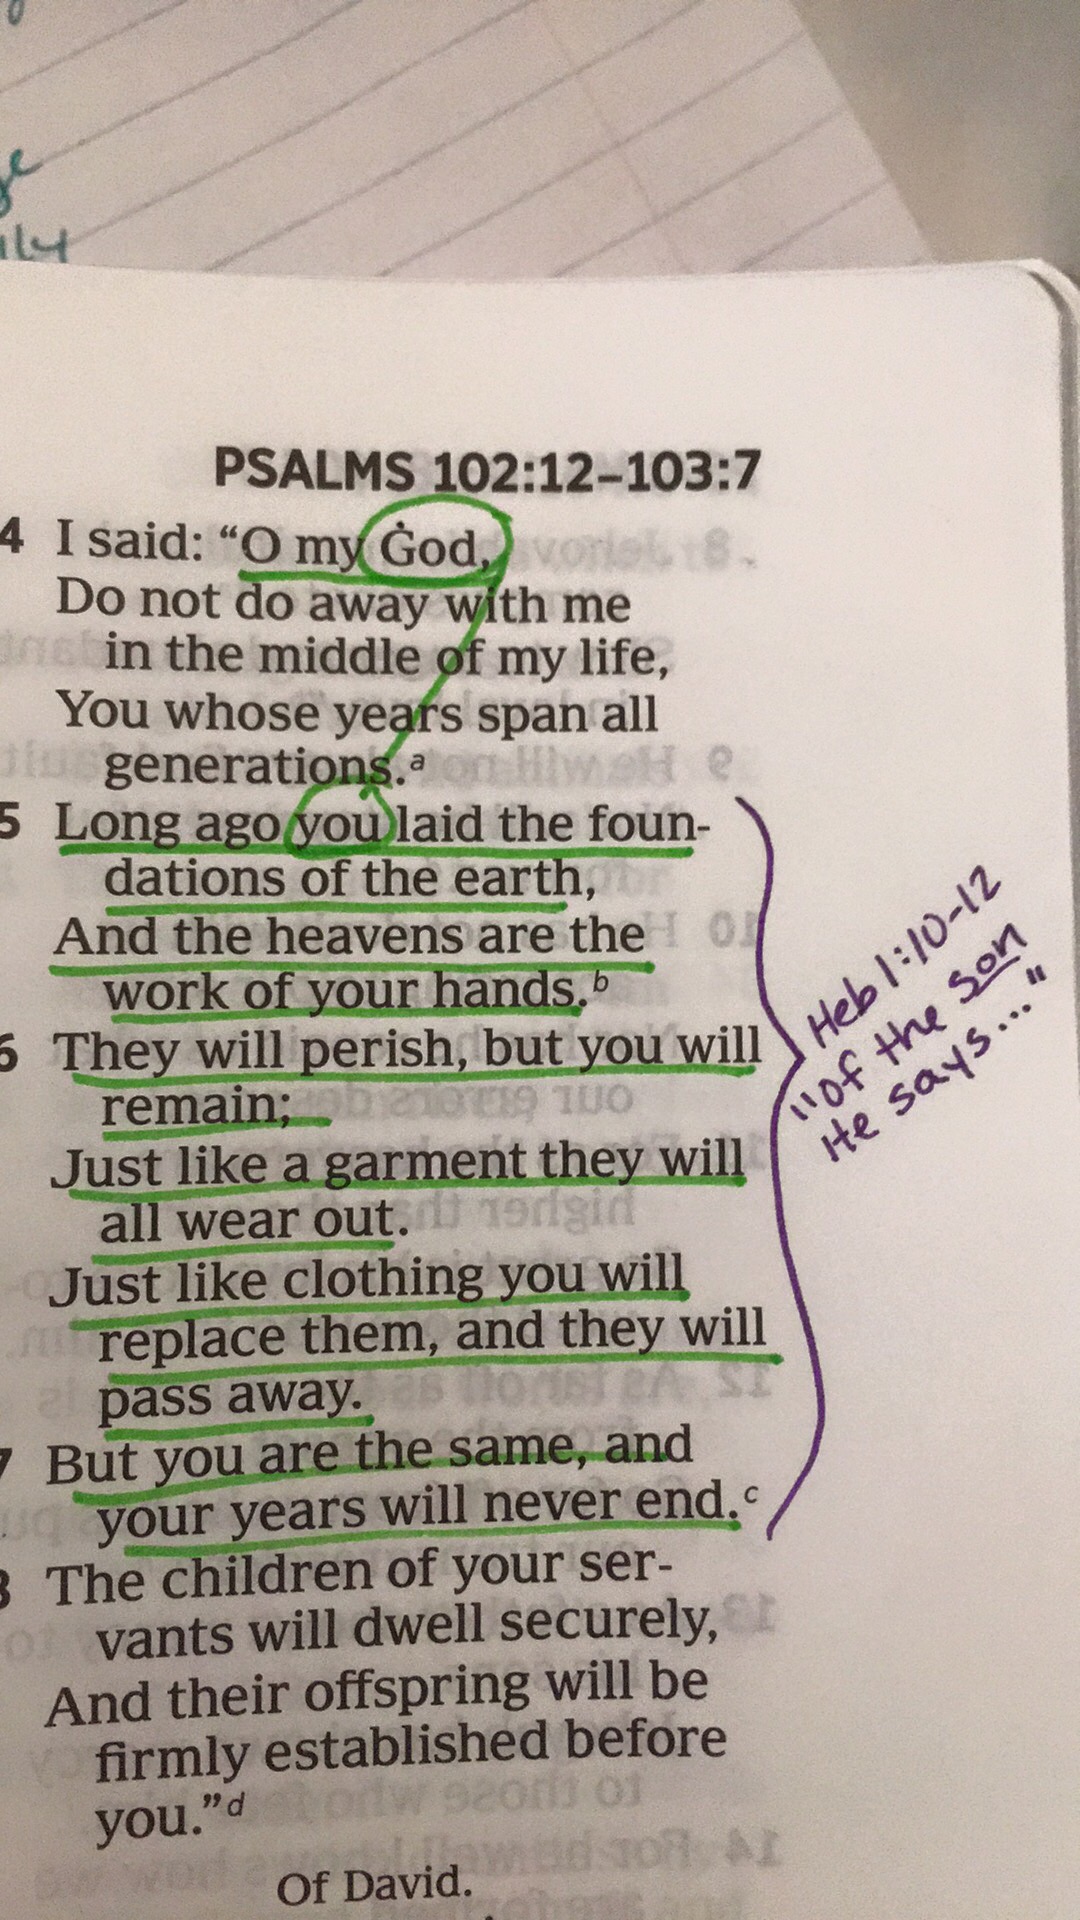 ily
PSALMS 102:12–103:7
4 I said: “O my God,
Do not do away with me
in the middle of my life,
You whose years span all
generations.ᵃ
5 Long ago you laid the foun-
dations of the earth,
And the heavens are the
work of your hands.ᵇ
6 They will perish, but you will
remain;
Just like a garment they will
all wear out.
Just like clothing you will
replace them, and they will
pass away.
7 But you are the same, and
your years will never end.ᶜ
8 The children of your ser-
vants will dwell securely,
And their offspring will be
firmly established before
you.”ᵈ
Of David.
Heb 1:10-12
"of the Son
He says..."